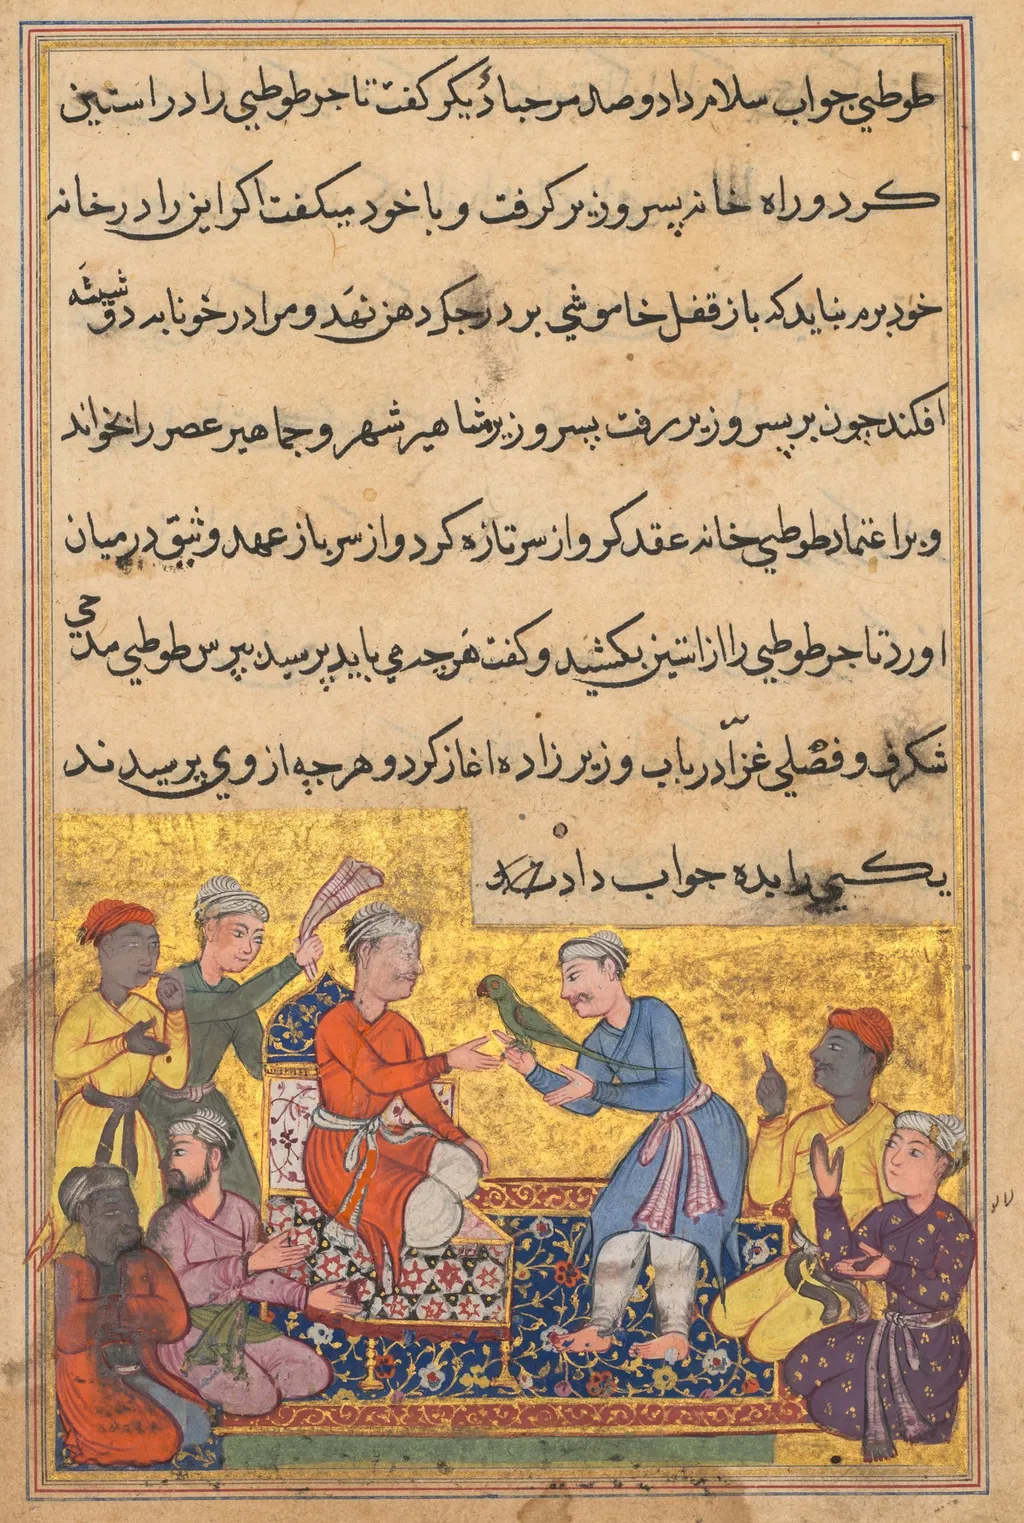 طوطي جواب سلام داد و صد مرحبا دیکر کفت تاجر طوطي را در استین
کرد و راه خانه پسر وزیر کرفت و با خود میکفت اکر این را در خانه
خود برم نباید که باز قفل خاموشي بر درجک دهن نهد و مرا در خونابه
افکند چون بر پسر وزیر رفت پسر وزیر مشاهیر شهر و جماهیر عصر را بخواند
و بر اعتماد طوطي خانه عقد کرو از سر تازه کرد و از سر باز عهد در میان
اورد تاجر طوطي را از استین بکشید و کفت هرچه مي باید پرسید بپرس طوطي مدحي
شکرف و فصلي غرا در باب وزیر زاده اغاز کرد و هر چه از وي پرسیدند
یکي را ده جواب داد